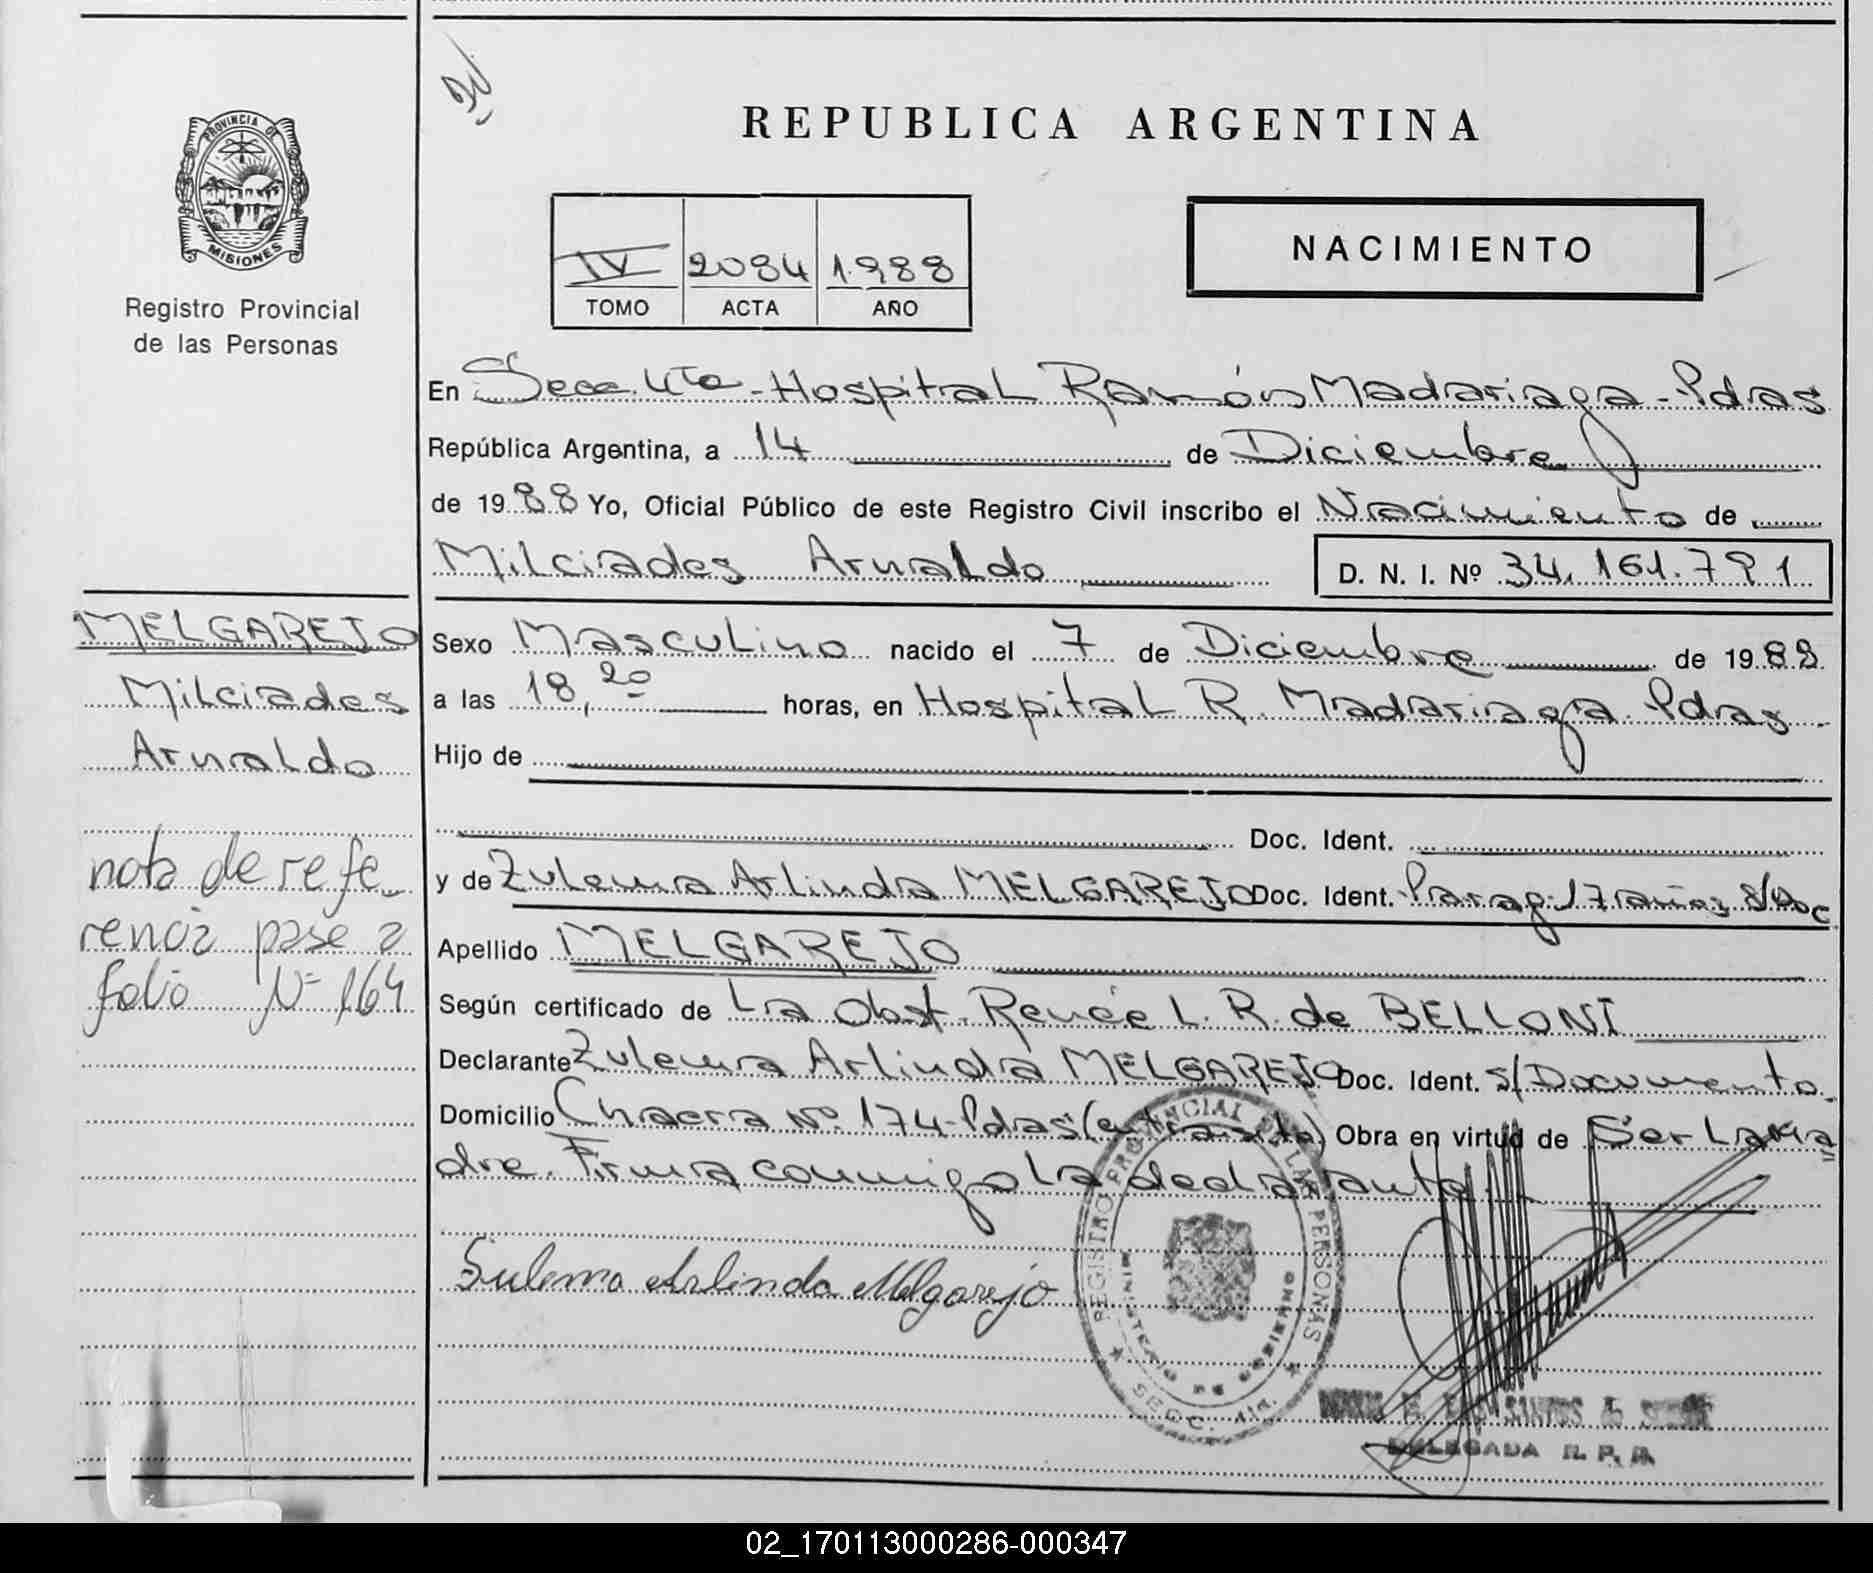 PROVINCIA DE
MISIONES
Registro Provincial
de las Personas
REPUBLICA ARGENTINA
IV 2084 1.988
TOMO ACTA AÑO
NACIMIENTO
En Secc. 4ta - Hospital Ramón Madariaga - Pdas
República Argentina, a 14 de Diciembre
de 1988 Yo, Oficial Público de este Registro Civil inscribo el Nacimiento de
Milciades Arnaldo D. N. I. Nº 34.161.791
MELGAREJO
Milciades
Arnaldo
nota de refe-
rencia pase a
folio Nº 164
Sexo Masculino nacido el 7 de Diciembre de 1988
a las 18,20 horas, en Hospital R. Madariaga Pdas
Hijo de
Doc. Ident.
y de Zulema Arlinda MELGAREJO Doc. Ident. Parag. 17 años s/Doc
Apellido MELGAREJO
Según certificado de La Obst. Renée L. R. de BELLONI
Declarante Zulema Arlinda MELGAREJO Doc. Ident. s/Documento
Domicilio Chacra Nº 174 - Pdas (entransito) Obra en virtud de Ser La Ma
dre. Firma conmigo la declarante
Sulema Arlinda Melgarejo
REGISTRO PROVINCIAL DE LAS PERSONAS
MINISTERIO DE GOBIERNO
SECC. 4ta.
SANTOS
DELEGADA R. P. P.
02_170113000286-000347